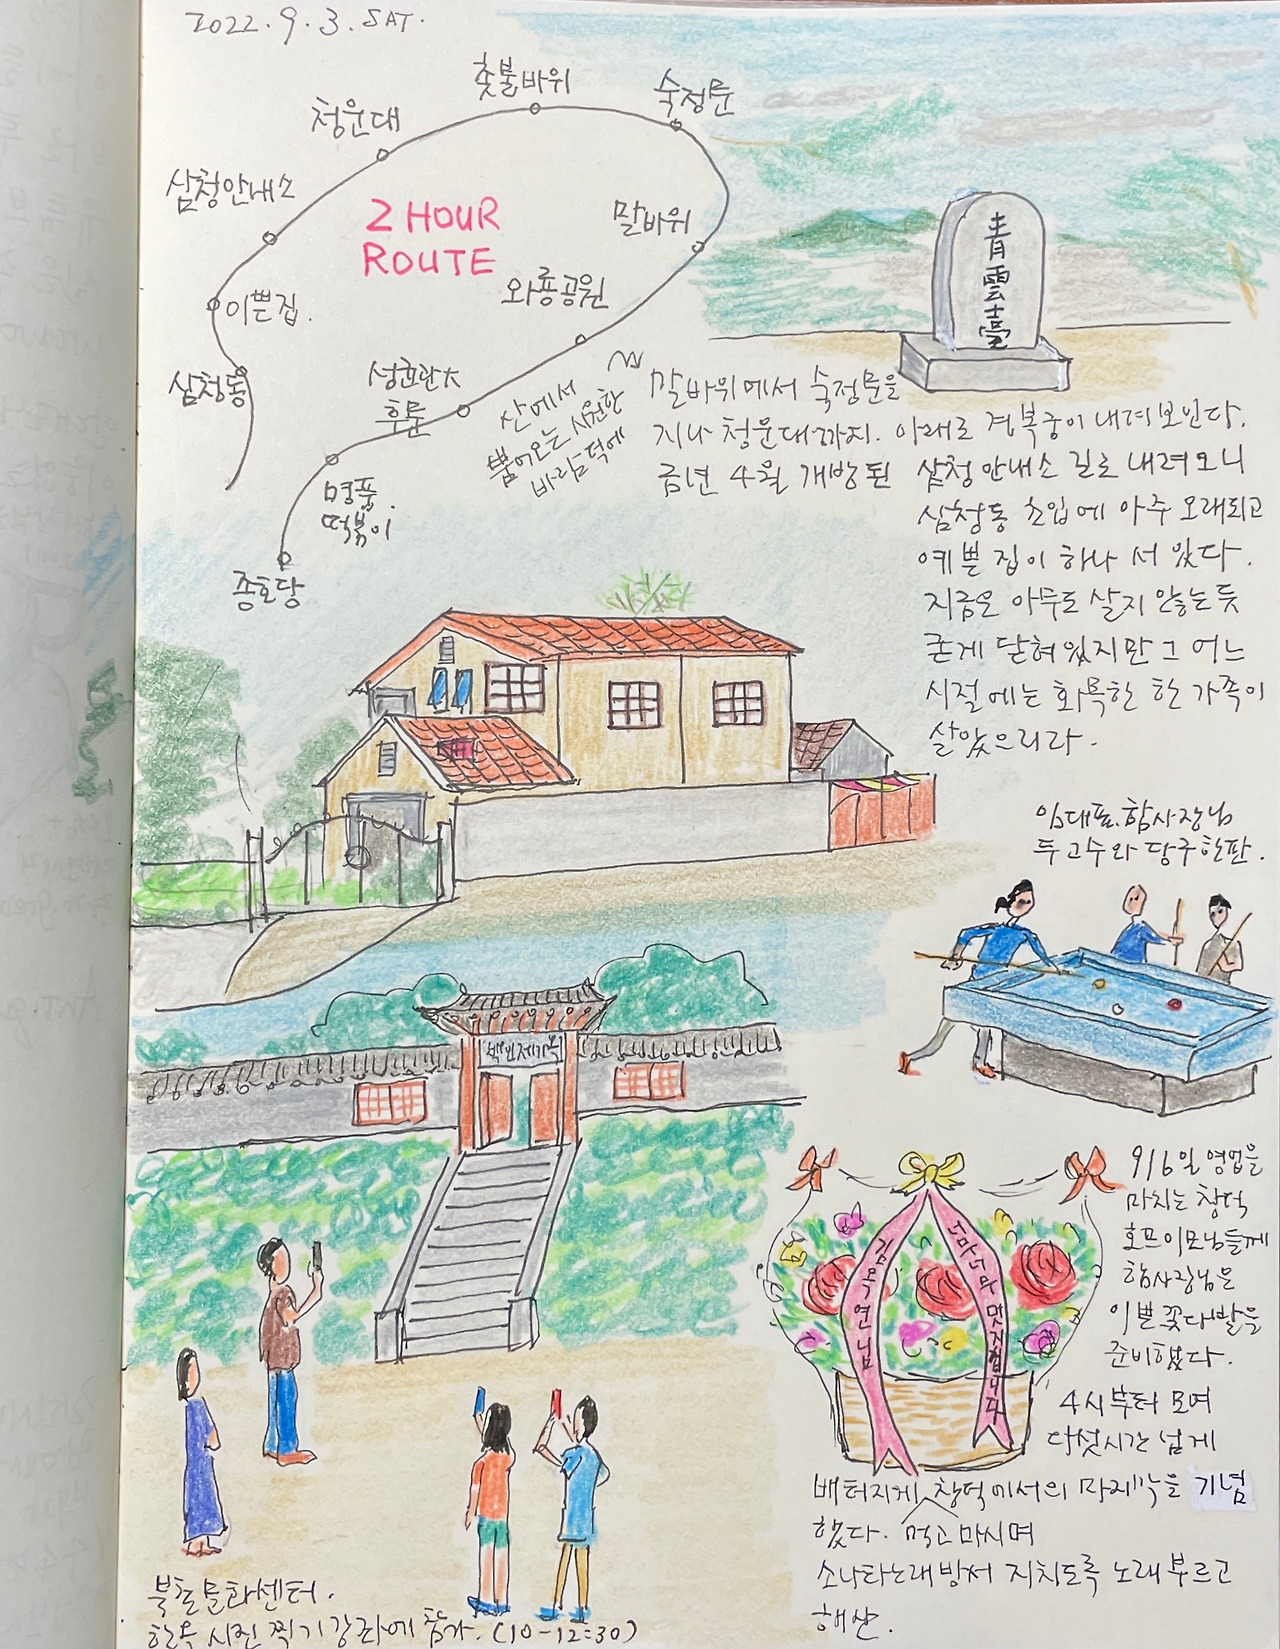 2022. 9. 3. SAT.
촛불바위
숙정문
청운대
삼청안내소
말바위
2 HOUR
ROUTE
와룡공원
이쁜집.
삼청동
성균관大
후문
명품
떡볶이
종로당
산에서
불어오는 시원한
바람덕에
靑雲臺
말바위에서 숙정문을
지나 청운대까지. 아래로 경복궁이 내려보인다.
금년 4월 개방된 삼청안내소 길로 내려오니
삼청동 초입에 아주 오래되고
예쁜 집이 하나 서 있다.
지금은 아무도 살지 않는듯
굳게 닫혀있지만 그 어느
시절에는 화목한 한 가족이
살았으리라.
임대표, 함사장님
두 고수와 당구한판.
백인제가옥
9/6일 영업을
마치는 창덕
호프이모님들께
함사장님은
이쁜 꽃다발을
준비했다.
김옥연님
당신은 멋지십니다
4시부터 모여
다섯시간 넘게
배터지게 먹고 마시며 창덕에서의 마지막을 기념
했다.
소나타노래방서 지치도록 노래부르고
해산.
북촌문화센터.
한옥 사진 찍기 강좌에 참가. (10-12:30)